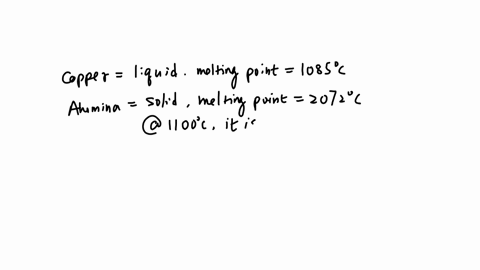 Copper = liquid. melting point = 1085°C
Alumina = solid, melting point = 2072°C
@ 1100°C, it is